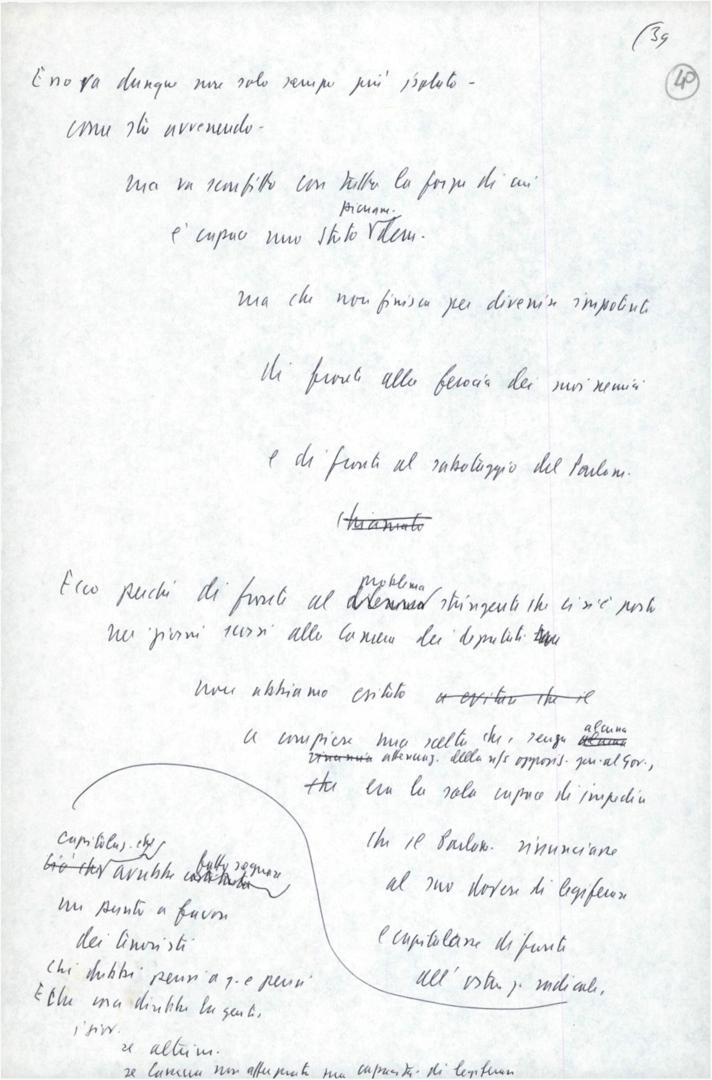 (39
40
Esso va dunque non solo sempre più isolato -
come sta avvenendo -
ma va sconfitto con tutta la forza di cui
pienam.
è capace uno Stato dem.
ma che non finisca per divenire impotente
di fronte alla ferocia dei suoi nemici
e di fronte al sabotaggio del Parlam.
chiamato
Ecco perché di fronte al dilemma stringente che ci si è posto
problema
nei giorni scorsi alla Camera dei deputati
non abbiamo esitato a evitare che il
a compiere una scelta che, senza alcuna
alcuna
attenuaz. della ns opposiz. gen. al Gov.,
che era la sola capace di impedire
che il Parlam. rinunciasse
al suo dovere di legiferare
e capitolasse di fronte
all'ostruz. radicale.
capitolaz. che
ciò che avrebbe fatto segnare
un punto a favore
dei terroristi
E che cosa direbbe la gente,
se altrim.
se Camera non affermata sua capacità di legiferare